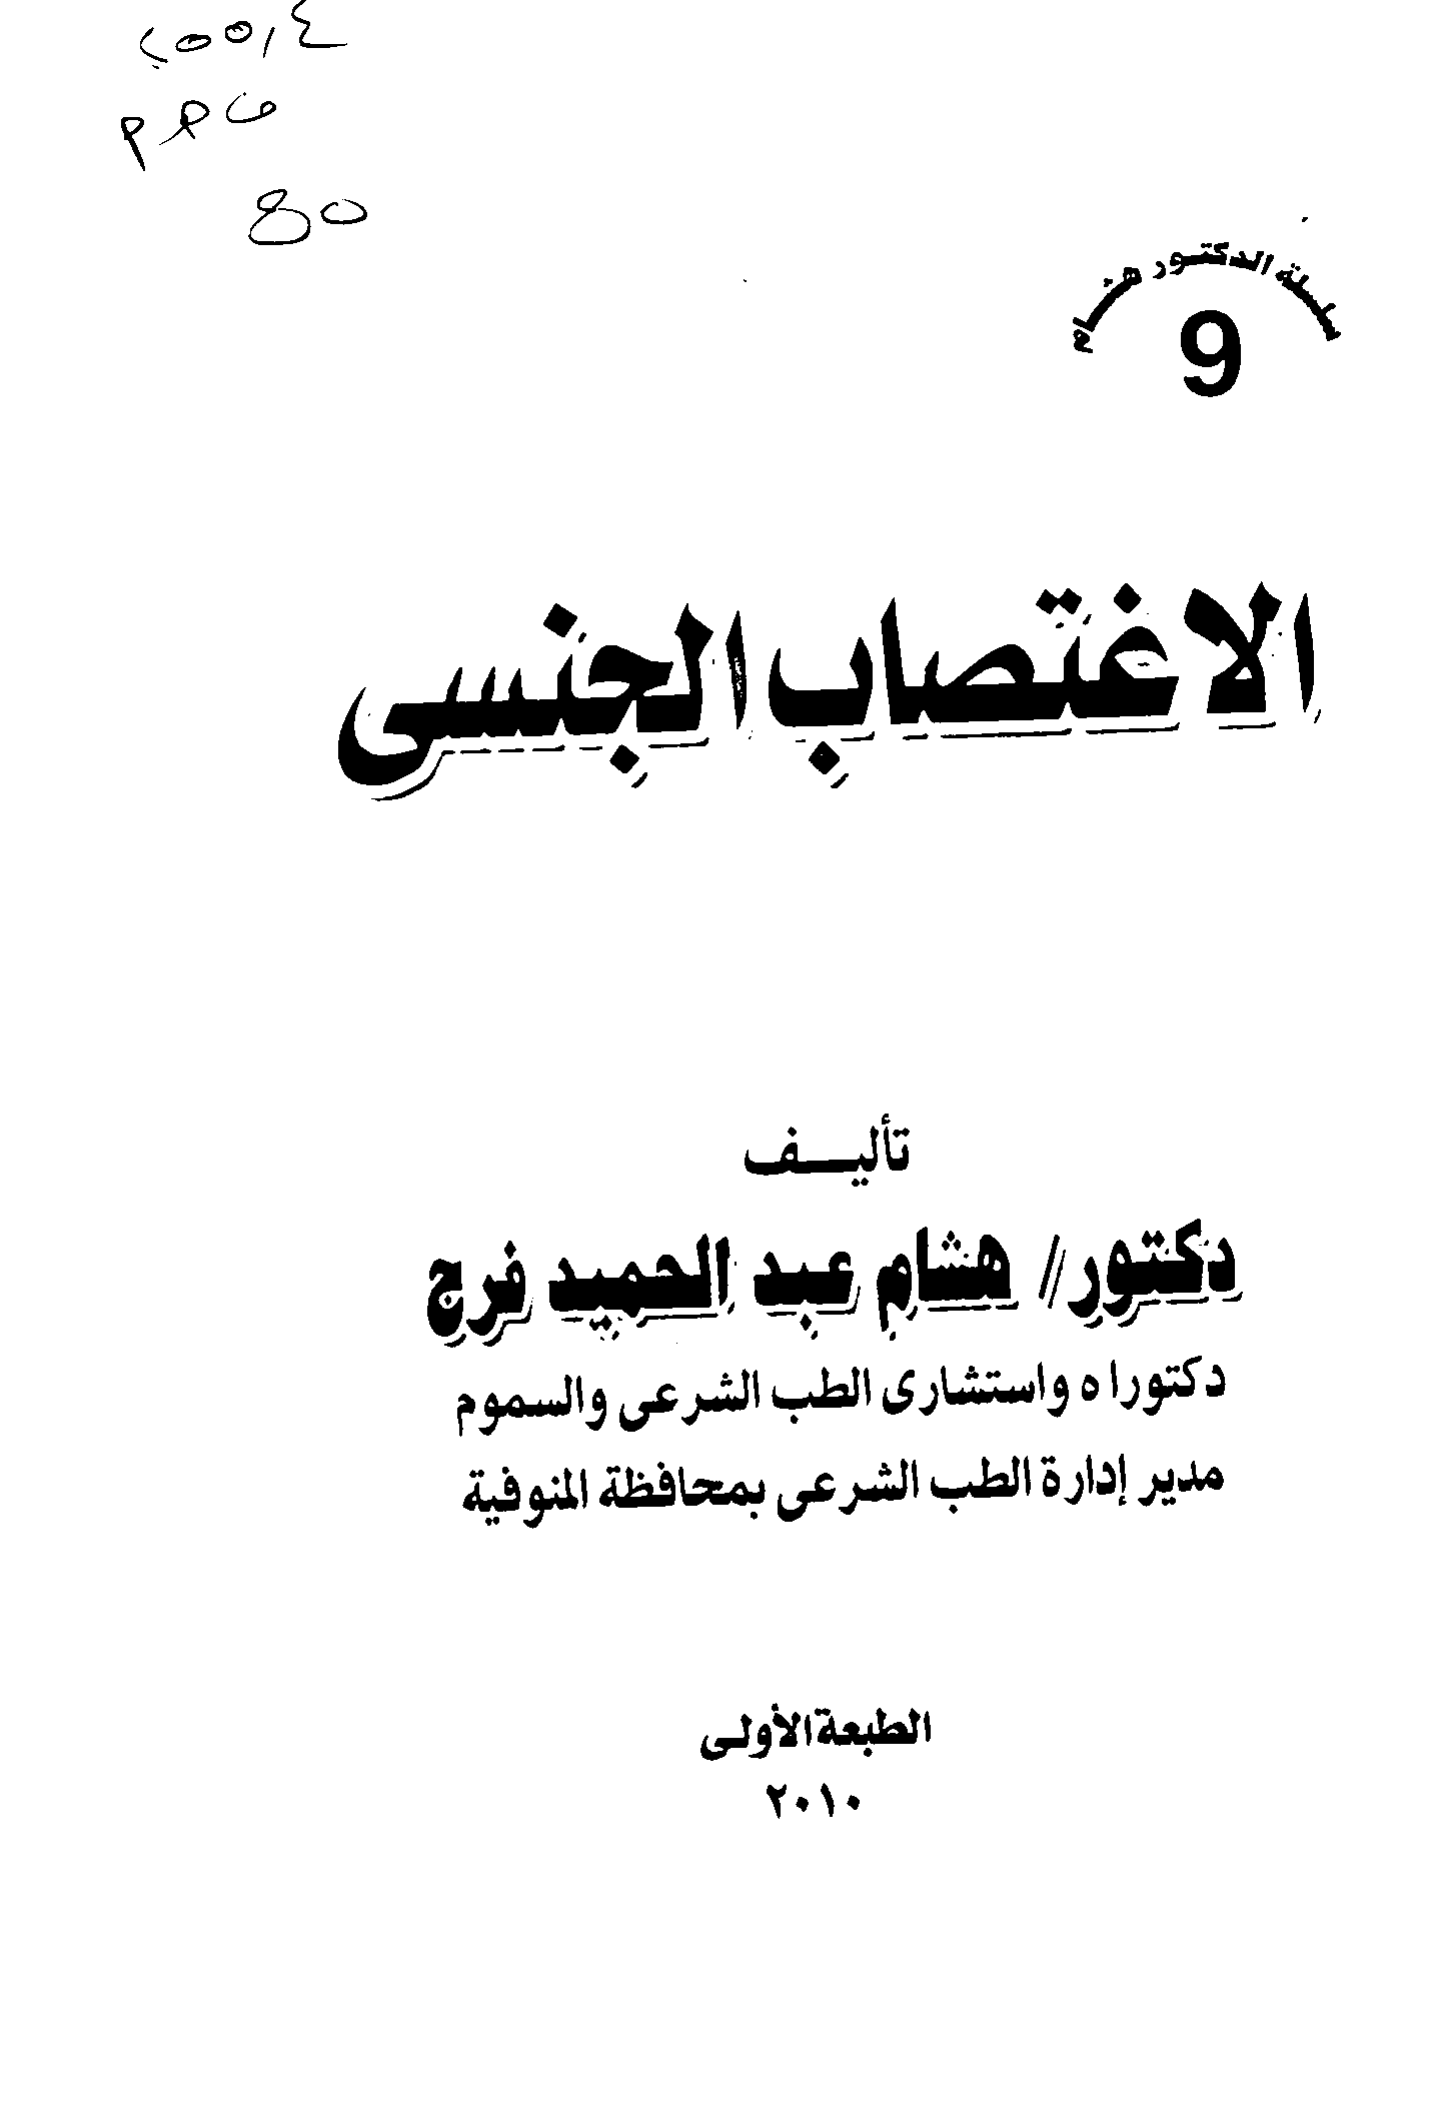 سلسلة الدكتور هشام
9
الاغتصاب الجنسى
تأليـــف
دكتور// هشام عبد الحميد فرج
دكتوراه واستشارى الطب الشرعى والسموم
مدير إدارة الطب الشرعى بمحافظة المنوفية
الطبعة الأولى
٢٠١٠